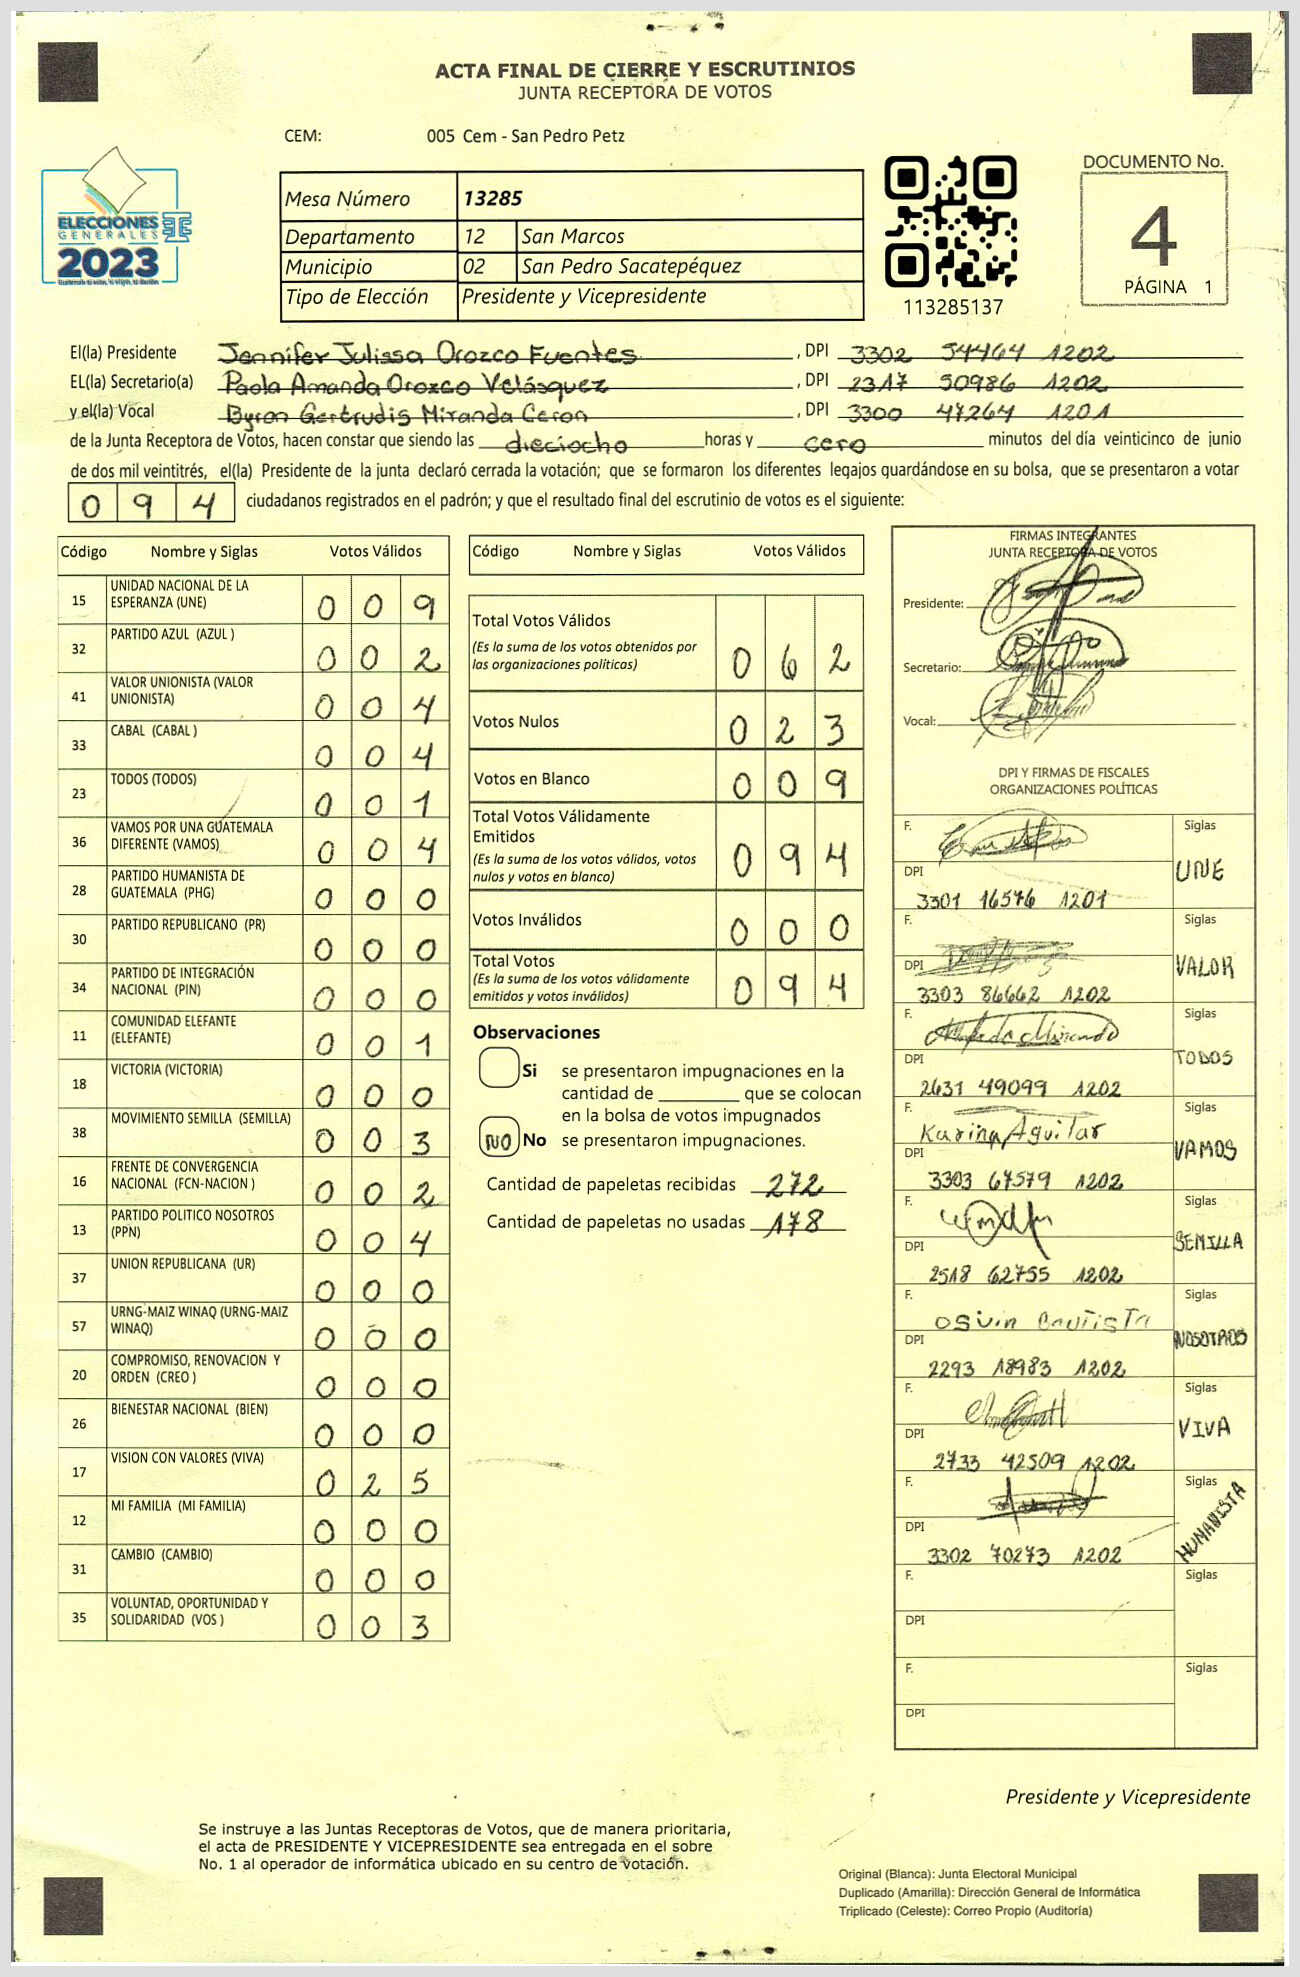 ACTA FINAL DE CIERRE Y ESCRUTINIOS
JUNTA RECEPTORA DE VOTOS
CEM: 005 Cem - San Pedro Petz
ELECCIONES
GENERALES
2023
Mesa Número 13285
Departamento 12 San Marcos
Municipio 02 San Pedro Sacatepéquez
Tipo de Elección Presidente y Vicepresidente
113285137
DOCUMENTO No.
4
PÁGINA 1
El(la) Presidente Jennifer Julissa Orozco Fuentes, DPI 3302 54464 1202
EL(la) Secretario(a) Paola Amanda Orozco Velásquez, DPI 2317 50986 1202
y el(la) Vocal Byron Gertrudis Miranda Ceron, DPI 3300 47264 1201
de la Junta Receptora de Votos, hacen constar que siendo las dieciocho horas y cero minutos del día veinticinco de junio
de dos mil veintitrés, el(la) Presidente de la junta declaró cerrada la votación; que se formaron los diferentes legajos guardándose en su bolsa, que se presentaron a votar
0 9 4 ciudadanos registrados en el padrón; y que el resultado final del escrutinio de votos es el siguiente:
Código Nombre y Siglas Votos Válidos
15 UNIDAD NACIONAL DE LA ESPERANZA (UNE) 0 0 9
32 PARTIDO AZUL (AZUL ) 0 0 2
41 VALOR UNIONISTA (VALOR UNIONISTA) 0 0 4
33 CABAL (CABAL ) 0 0 4
23 TODOS (TODOS) 0 0 1
36 VAMOS POR UNA GUATEMALA DIFERENTE (VAMOS) 0 0 4
28 PARTIDO HUMANISTA DE GUATEMALA (PHG) 0 0 0
30 PARTIDO REPUBLICANO (PR) 0 0 0
34 PARTIDO DE INTEGRACIÓN NACIONAL (PIN) 0 0 0
11 COMUNIDAD ELEFANTE (ELEFANTE) 0 0 1
18 VICTORIA (VICTORIA) 0 0 0
38 MOVIMIENTO SEMILLA (SEMILLA) 0 0 3
16 FRENTE DE CONVERGENCIA NACIONAL (FCN-NACION ) 0 0 2
13 PARTIDO POLITICO NOSOTROS (PPN) 0 0 4
37 UNION REPUBLICANA (UR) 0 0 0
57 URNG-MAIZ WINAQ (URNG-MAIZ WINAQ) 0 0 0
20 COMPROMISO, RENOVACION Y ORDEN (CREO ) 0 0 0
26 BIENESTAR NACIONAL (BIEN) 0 0 0
17 VISION CON VALORES (VIVA) 0 2 5
12 MI FAMILIA (MI FAMILIA) 0 0 0
31 CAMBIO (CAMBIO) 0 0 0
35 VOLUNTAD, OPORTUNIDAD Y SOLIDARIDAD (VOS ) 0 0 3
Código Nombre y Siglas Votos Válidos
Total Votos Válidos
(Es la suma de los votos obtenidos por
las organizaciones políticas) 0 6 2
Votos Nulos 0 2 3
Votos en Blanco 0 0 9
Total Votos Válidamente
Emitidos
(Es la suma de los votos válidos, votos
nulos y votos en blanco) 0 9 4
Votos Inválidos 0 0 0
Total Votos
(Es la suma de los votos válidamente
emitidos y votos inválidos) 0 9 4
Observaciones
Si se presentaron impugnaciones en la
cantidad de ________ que se colocan
en la bolsa de votos impugnados
NO No se presentaron impugnaciones.
Cantidad de papeletas recibidas 272
Cantidad de papeletas no usadas 178
FIRMAS INTEGRANTES
JUNTA RECEPTORA DE VOTOS
Presidente:
Secretario:
Vocal:
DPI Y FIRMAS DE FISCALES
ORGANIZACIONES POLÍTICAS
F. Siglas
DPI UNE
3301 16576 1201
F. Siglas
DPI VALOR
3303 86662 1202
F. Siglas
DPI TODOS
2631 49099 1202
F. Karina Aguilar Siglas
DPI VAMOS
3303 67579 1202
F. Siglas
DPI SEMILLA
2518 62755 1202
F. Osvin Bautista Siglas
DPI NOSOTROS
2293 18983 1202
F. Siglas
DPI VIVA
2733 42509 1202
F. Siglas
DPI HUMANISTA
3302 70273 1202
F. Siglas
DPI
F. Siglas
DPI
Presidente y Vicepresidente
Se instruye a las Juntas Receptoras de Votos, que de manera prioritaria,
el acta de PRESIDENTE Y VICEPRESIDENTE sea entregada en el sobre
No. 1 al operador de informática ubicado en su centro de votación.
Original (Blanca): Junta Electoral Municipal
Duplicado (Amarilla): Dirección General de Informática
Triplicado (Celeste): Correo Propio (Auditoría)